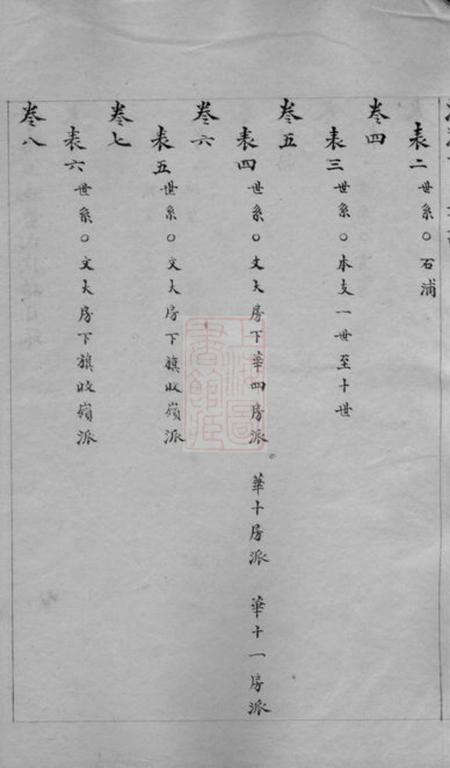 表二 世系○石浦
卷四
表三 世系○本支一世至十世
卷五
表四 世系○文大房下華四房派 華十房派 華十一房派
卷六
表五 世系○文大房下旗收嶺派
卷七
表六 世系○文大房下旗收嶺派
卷八